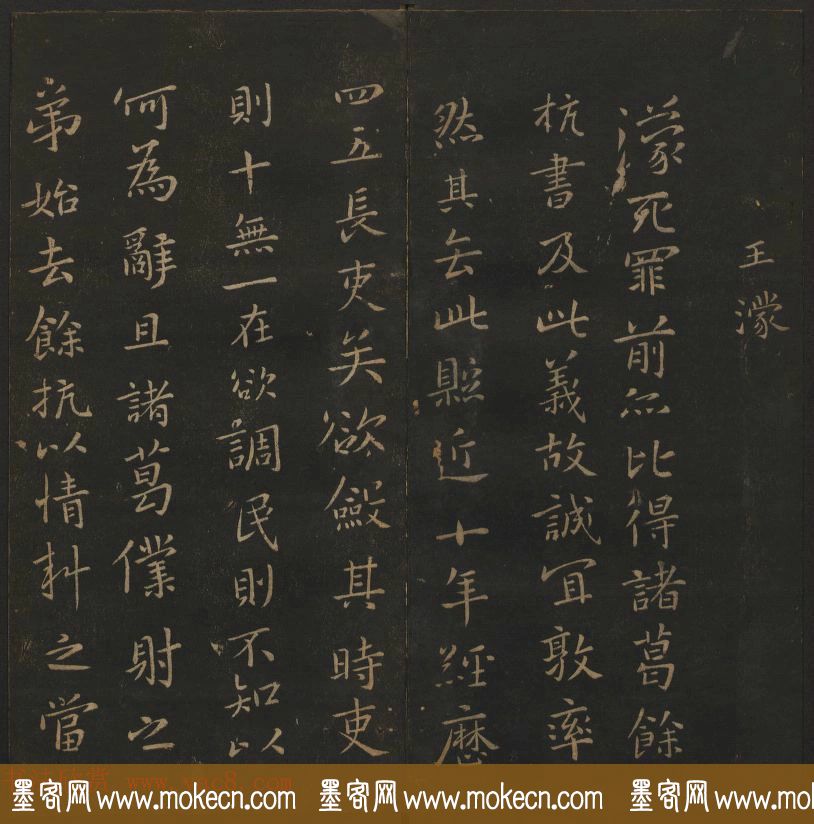 王濛
濛死罪前亦比得諸葛餘
杭書及此義故誠宜敦率
然其去此縣近十年經歷
四五長吏矣欲斂其時吏
則十無一在欲調民則不知以
何為辭且諸葛僕射之
弟始去餘杭以情料之當
书法欣赏 www.yac8.com
墨客网 www.mokecn.com 墨客网 www.mokecn.com 墨客网 www.mokecn.com